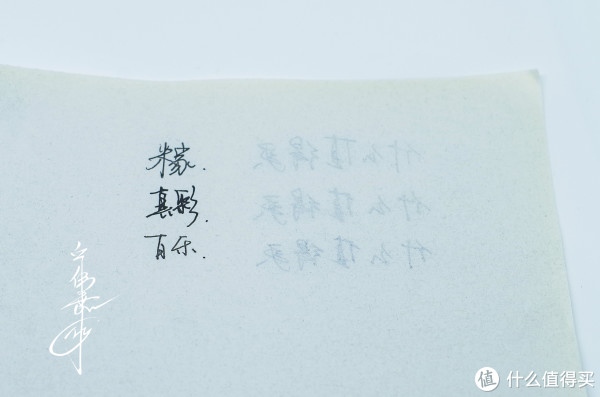 米家. 什么值得买
真彩. 什么值得买
百乐. 什么值得买
值 什么值得买